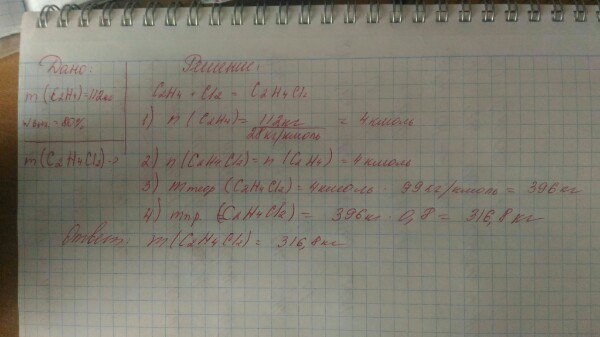 Дано:
m(C2H4)=112кг
wвых.=80%
m(C2H4Cl2)-?
Решение:
C2H4 + Cl2 = C2H4Cl2
1) n(C2H4)= 112кг / 28кг/кмоль = 4 кмоль
2) n(C2H4Cl2)= n(C2H4) = 4 кмоль
3) mтеор (C2H4Cl2)= 4 кмоль · 99 кг/кмоль = 396 кг
4) mпр. (C2H4Cl2) = 396 кг · 0,8 = 316,8 кг
Ответ: m(C2H4Cl2) = 316,8 кг